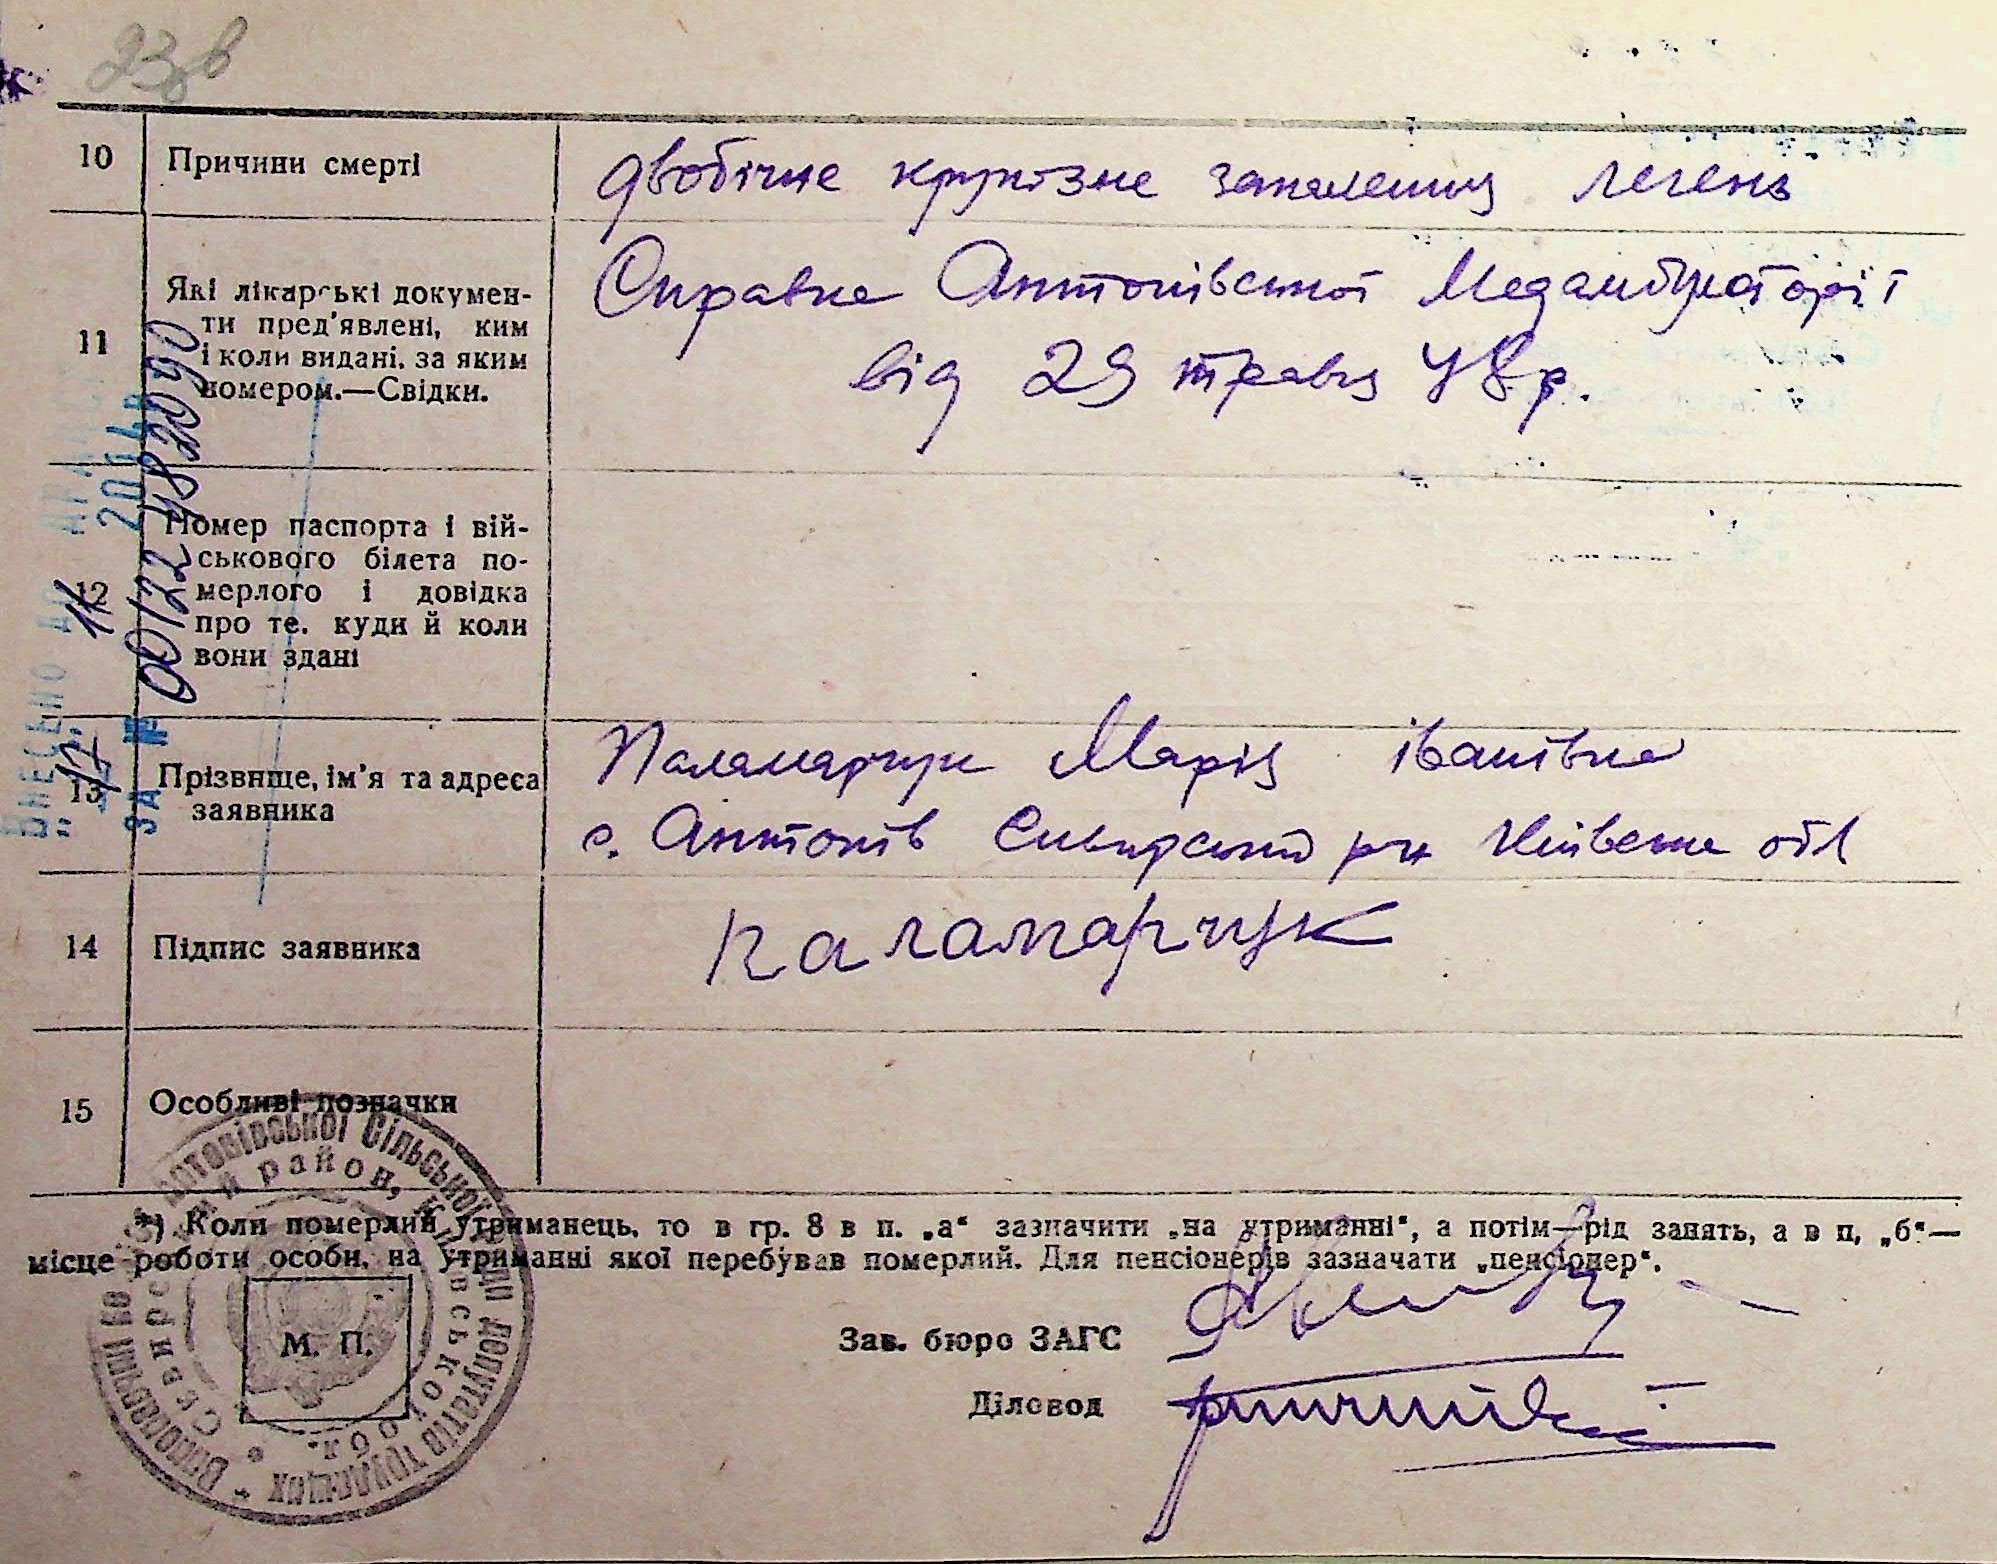 23 зв
10 Причини смерті двобічне крупозне запалення легень
11 Які лікарські докумен-
ти пред'явлені, ким
і коли видані, за яким
номером.—Свідки.
Справка Антонівської Медамбулаторії
від 29 травня 48 р.
12 Номер паспорта і вій-
ськового білета по-
мерлого і довідка
про те, куди й коли
вони здані
13 Прізвище, ім'я та адреса
заявника
Паламарчук Марія Іванівна
с. Антонів Сквирський р-н Київська обл
14 Підпис заявника Паламарчук
15 Особливі позначки
*) Коли померлий утриманець, то в гр. 8 в п. „а“ зазначити „на утриманні“, а потім—рід занять, а в п. „б“—
місце роботи особи, на утриманні якої перебував померлий. Для пенсіонерів зазначати „пенсіонер“.
М. П.
Зав. бюро ЗАГС
Діловод
ВНЕСЕНО
ЗА № 00122482090
Антонівської Сільської Ради депутатів трудящих
район, Київської обл.